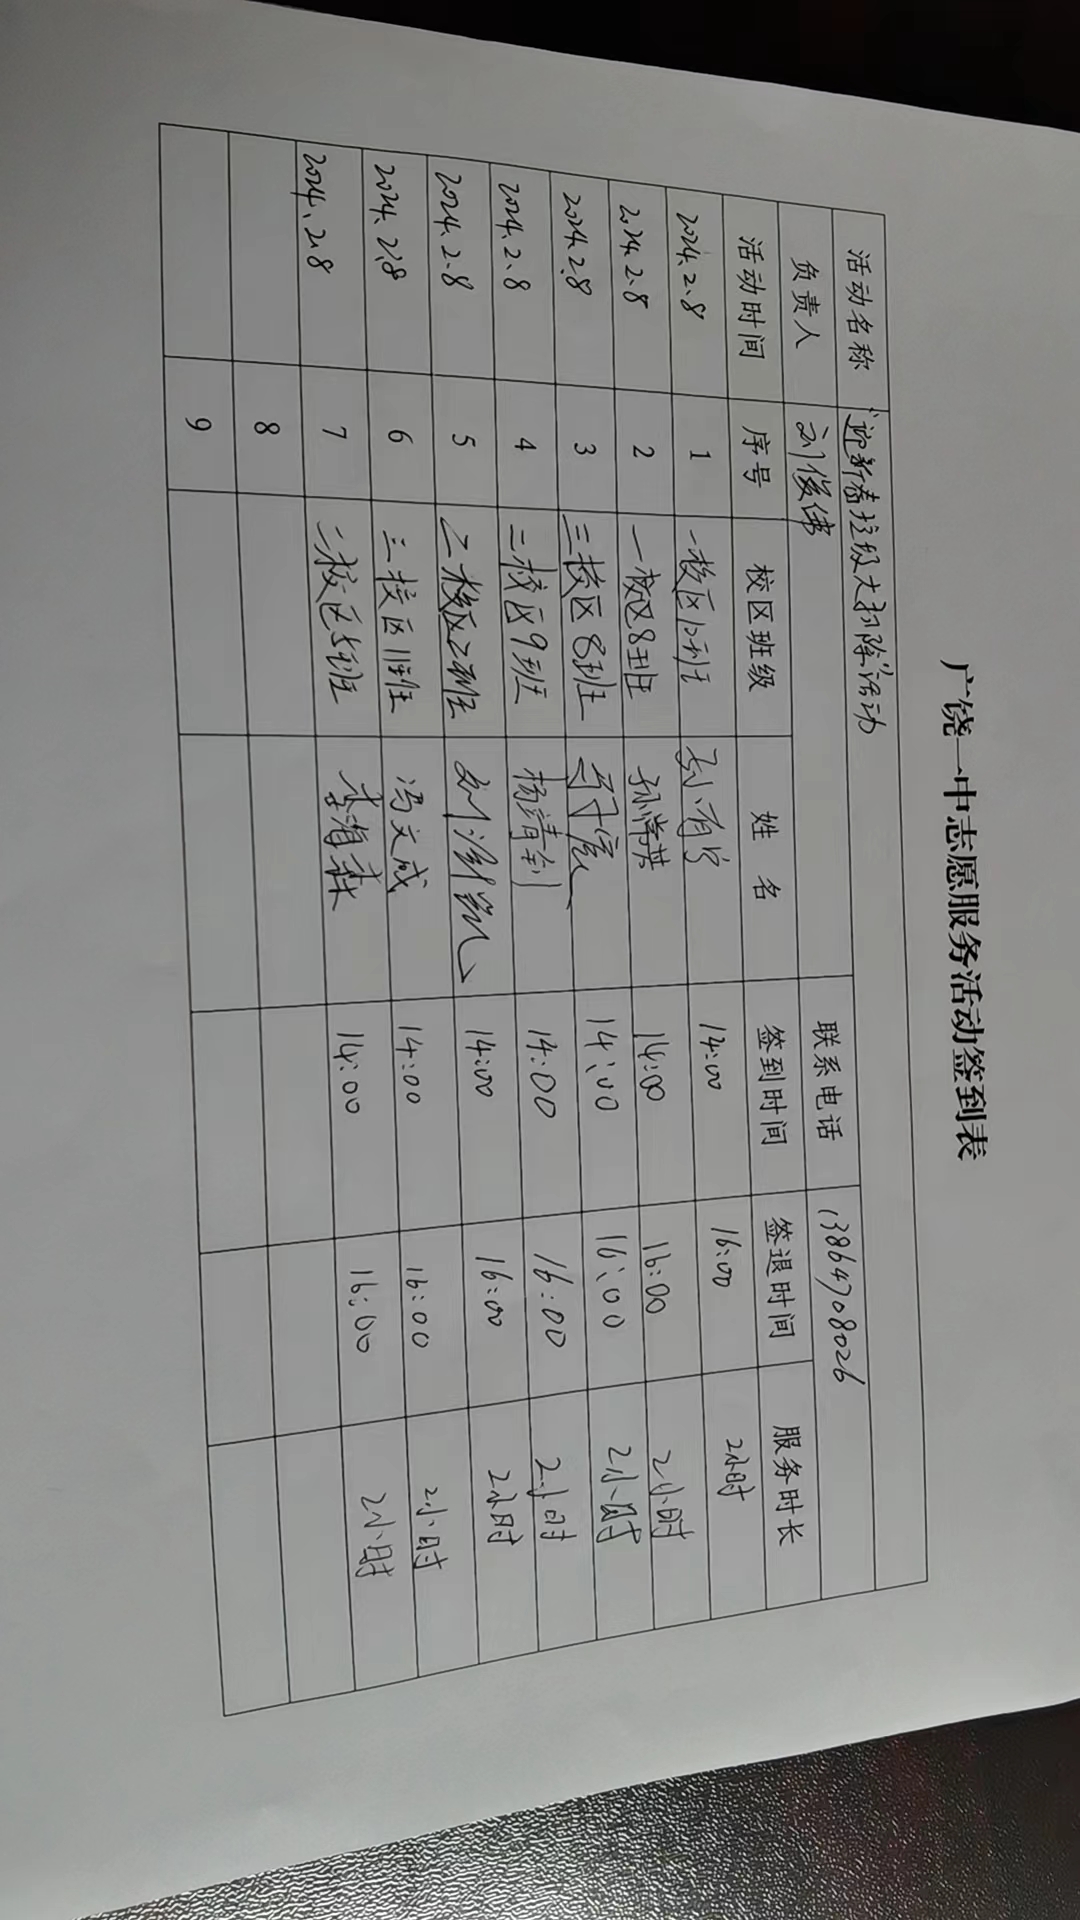 广饶一中志愿服务活动签到表
活动名称 "迎新春垃圾大扫除"活动
负责人 刘俊伟 联系电话 13864708026
活动时间 序号 校区班级 姓名 签到时间 签退时间 服务时长
2024.2.8 1 一校区12班 14:00 16:00 2小时
2024.2.8 2 一校区8班 14:00 16:00 2小时
2024.2.8 3 三校区8班 14:00 16:00 2小时
2024.2.8 4 二校区9班 14:00 16:00 2小时
2024.2.8 5 二校区2班 14:00 16:00 2小时
2024.2.8 6 三校区11班 冯文成 14:00 16:00 2小时
2024.2.8 7 二校区5班 李海森 14:00 16:00 2小时
8
9